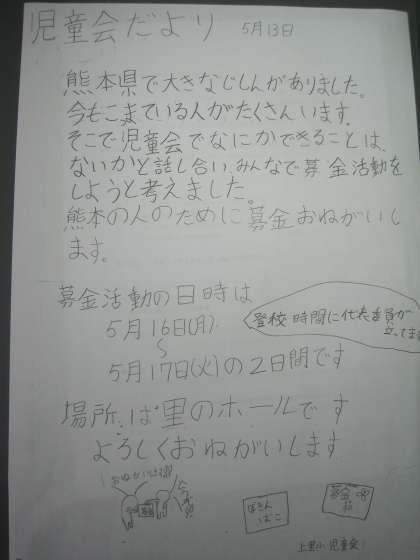 児童会だより 5月13日
熊本県で大きなじしんがありました。
今もこまっている人がたくさんいます。
そこで児童会でなにかできることは、
ないかと話し合い、みんなで募金活動を
しようと考えました。
熊本の人のために募金おねがいし
ます。
募金活動の日時は
5月16日(月)
〜
5月17日(火)の2日間です
登校時間に代表委員が
立ってます
場所は里のホールです
よろしくおねがいします
ぼきん
ばこ
募金
箱
児童会